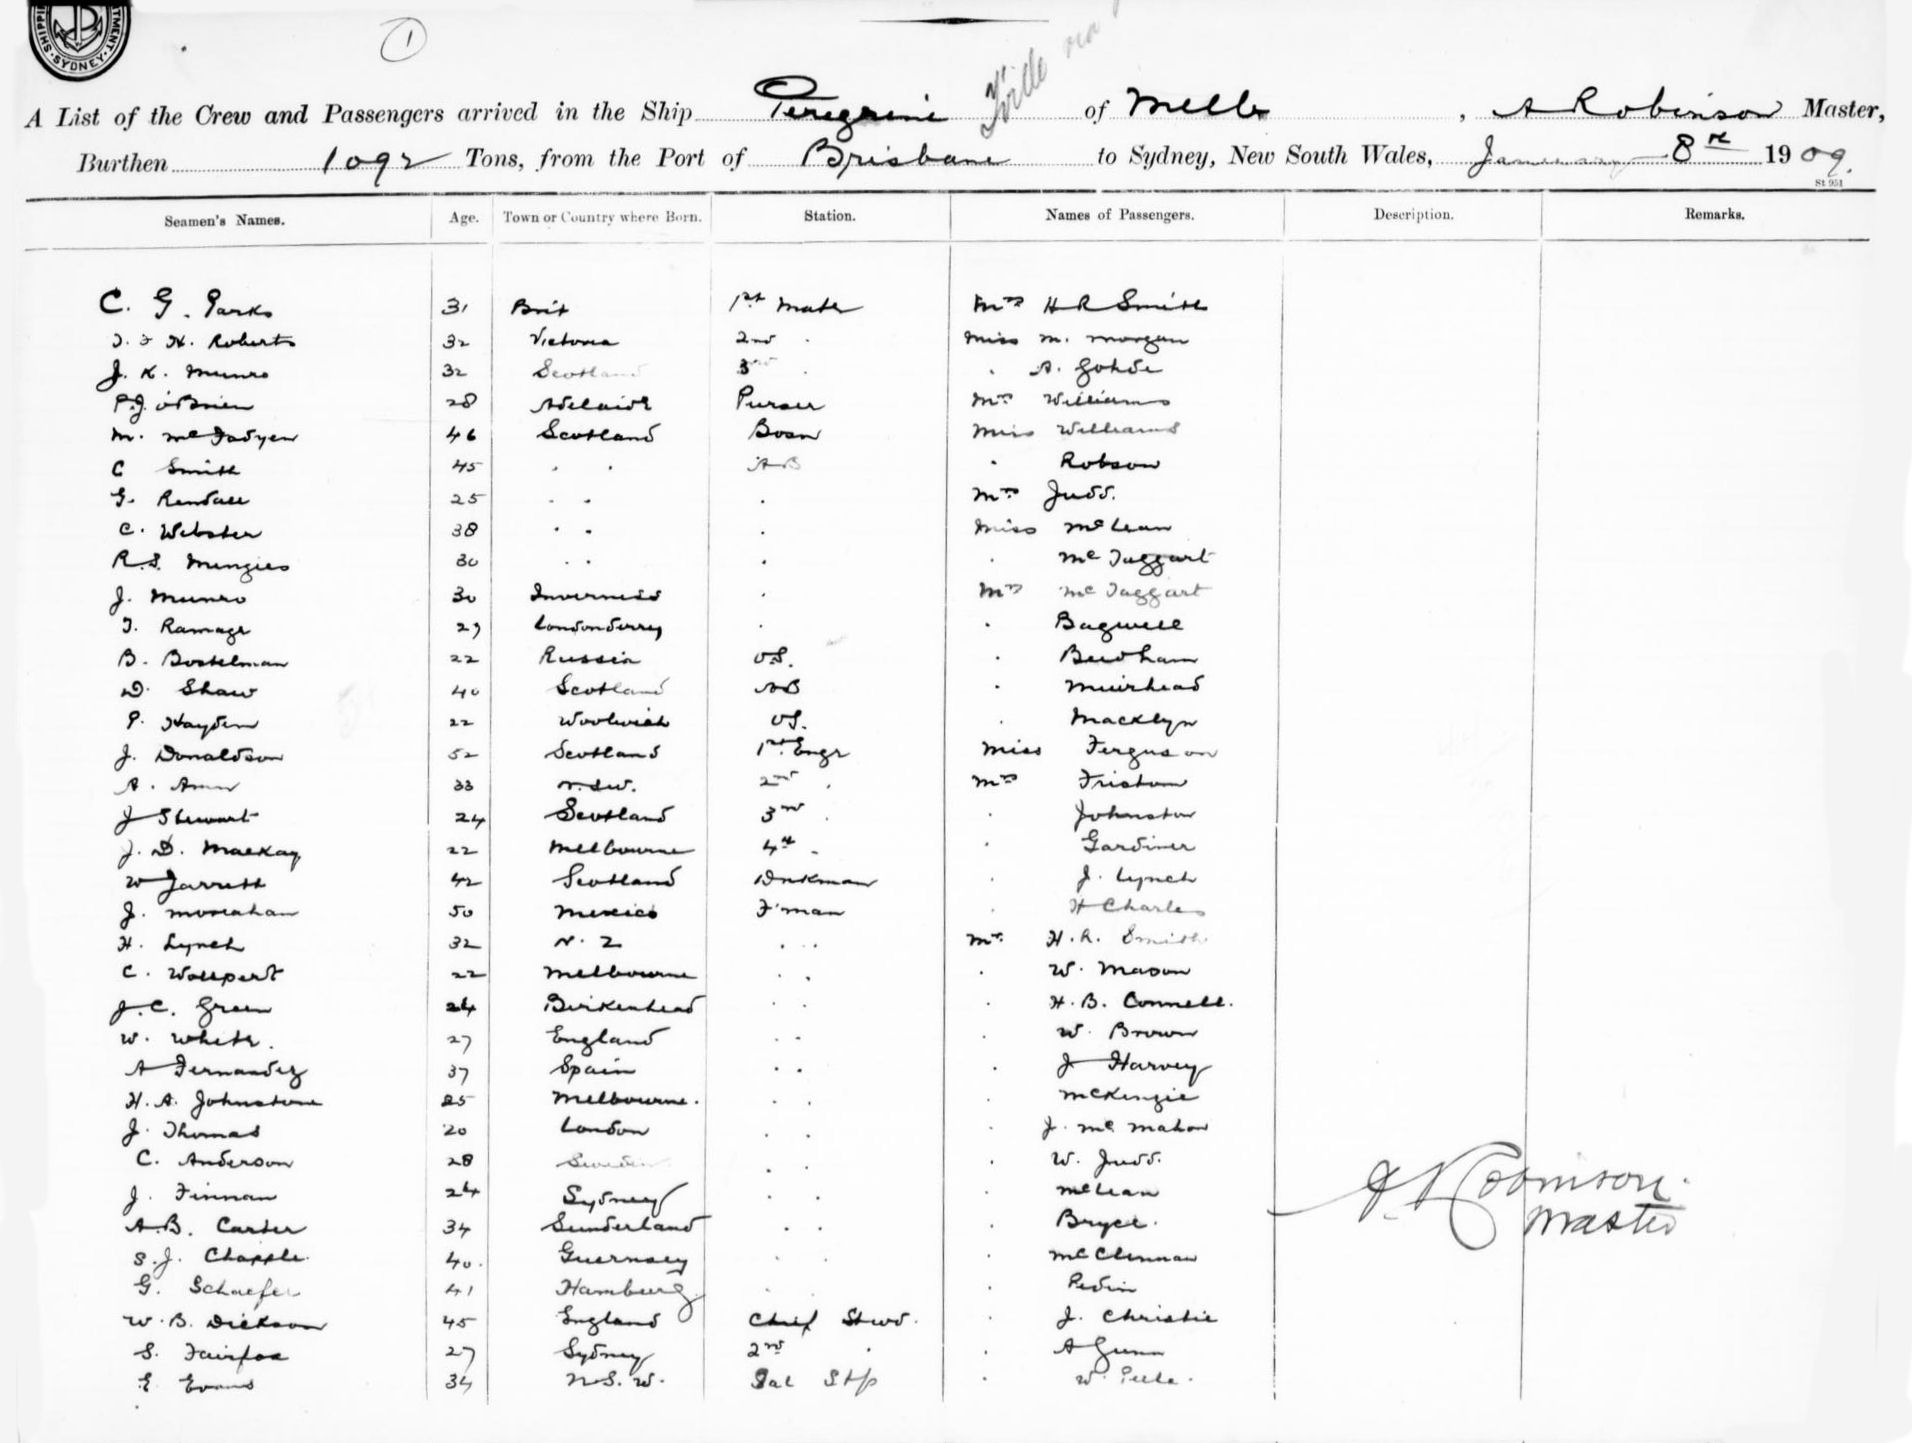 SHIPPI
TMENT
SYDNEY
1
T'ville via
A List of the Crew and Passengers arrived in the Ship Peregrine of Melb, A Robinson Master,
Burthen 1092 Tons, from the Port of Brisbane to Sydney, New South Wales, January 8th 1909.
St 951
Seamen's Names. Age. Town or Country where Born. Station. Names of Passengers. Description. Remarks.
C. G. Parks 31 Brit 1st Mate Mrs H R Smith
H. Roberts 32 Victoria 2nd . Miss M. Morgan
J. K. Munro 32 Scotland 3rd . . A. Gohde
P.J. O'Brien 28 Adelaide Purser Mrs Williams
M. McFadyen 46 Scotland Bosn Miss Williams
C Smith 45 . . AB . Robson
G. Rendall 25 . . . Mrs Judd.
C. Webster 38 . . . Miss McLean
R.S. Menzies 30 . . . . McTaggart
J. Munro 30 Inverness . Mrs McTaggart
T. Ramage 29 Londonderry . . Bagwell
B. Bostelman 22 Russia O.S. . Beedham
D. Shaw 40 Scotland AB . Muirhead
P. Hayden 22 Woolwich OS. . Macklyn
J. Donaldson 52 Scotland 1st Engr Miss Ferguson
A. 33 N.S.W. 2nd . Mrs Fristom
J Stewart 24 Scotland 3rd . . Johnston
J. D. Mackay 22 Melbourne 4th . . Gardiner
W Jarrett 42 Scotland Dnkman . J. Lynch
J. 50 Mexico F'man . H Charles
H. Lynch 32 N. Z . . Mr. H. R. Smith
C. Wollpert 22 Melbourne . . . W. Mason
J. C. Green 24 Birkenhead . . . H. B. Connell.
W. White. 27 England . . . W. Brown
A Fernandez 37 Spain . . . J Harvey
H. A. Johnstone 25 Melbourne. . . . McKenzie
J. Thomas 20 London . . . J. McMahon
C. Anderson 28 Sweden . . . W. Judd.
J. Finnan 24 Sydney . . . McLean
A.B. Carter 34 Sunderland . . . Bryce.
S. J. Chapple. 40. Guernsey . . . McClennan
G. Schaefer 41 Hamburg . . . Pedin
W. B. Dickson 45 England Chief Stwd. . J. Christie
S. Fairfax 27 Sydney 2nd . . A Gunn
E. Evans 34 N.S.W. Sal Stp . W.
A Robinson.
Master